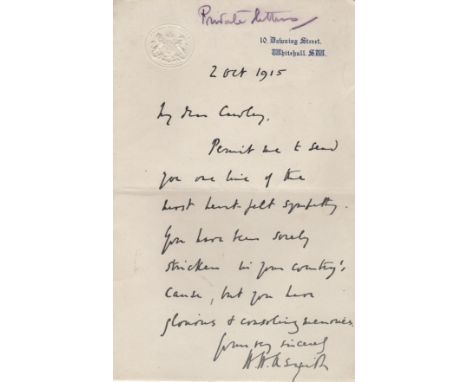 Private letters
10, Downing Street,
Whitehall, S.W.
2 Oct 1915
My dear Cawley,
Permit me to send
you one line of the
most heart-felt sympathy.
You have been sorely
stricken in your country's
cause, but you have
glorious & consoling memories.
Yours very sincerely
H. H. Asquith